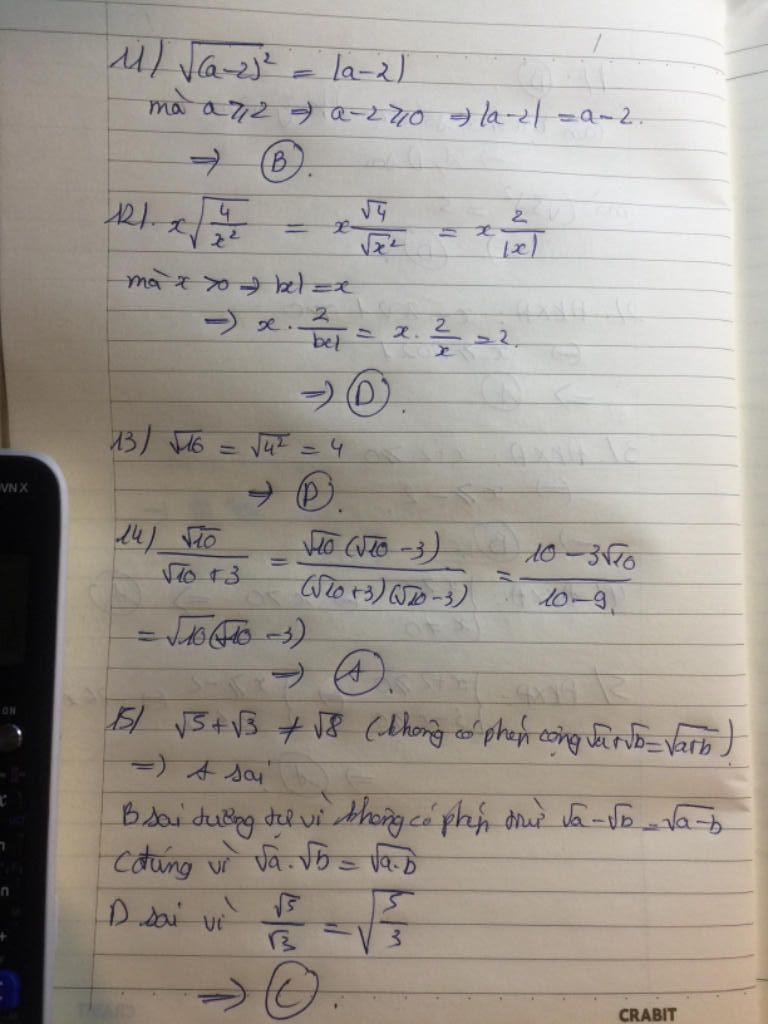 11) √(a-2)² = |a-2|
mà a ⩾ 2 ⇒ a-2 ⩾ 0 ⇒ |a-2| = a-2.
⇒ B.
12). x√(4/x²) = x √4/√x² = x 2/|x|
mà x > 0 ⇒ |x| = x
⇒ x . 2/|x| = x . 2/x = 2.
⇒ D.
13) √16 = √4² = 4
⇒ D.
14) √10/(√10 + 3) = √10(√10 - 3)/((√10+3)(√10-3)) = (10 - 3√10)/(10 - 9)
= √10(√10 - 3)
⇒ A.
15) √5 + √3 ≠ √8 (không có phép cộng √a+√b = √(a+b))
⇒ A sai
B sai tương tự vì không có phép trừ √a - √b = √(a-b)
C đúng vì √a . √b = √(a.b)
D sai vì √5/√3 = √(5/3)
⇒ C.
VN X
ON
CRABIT